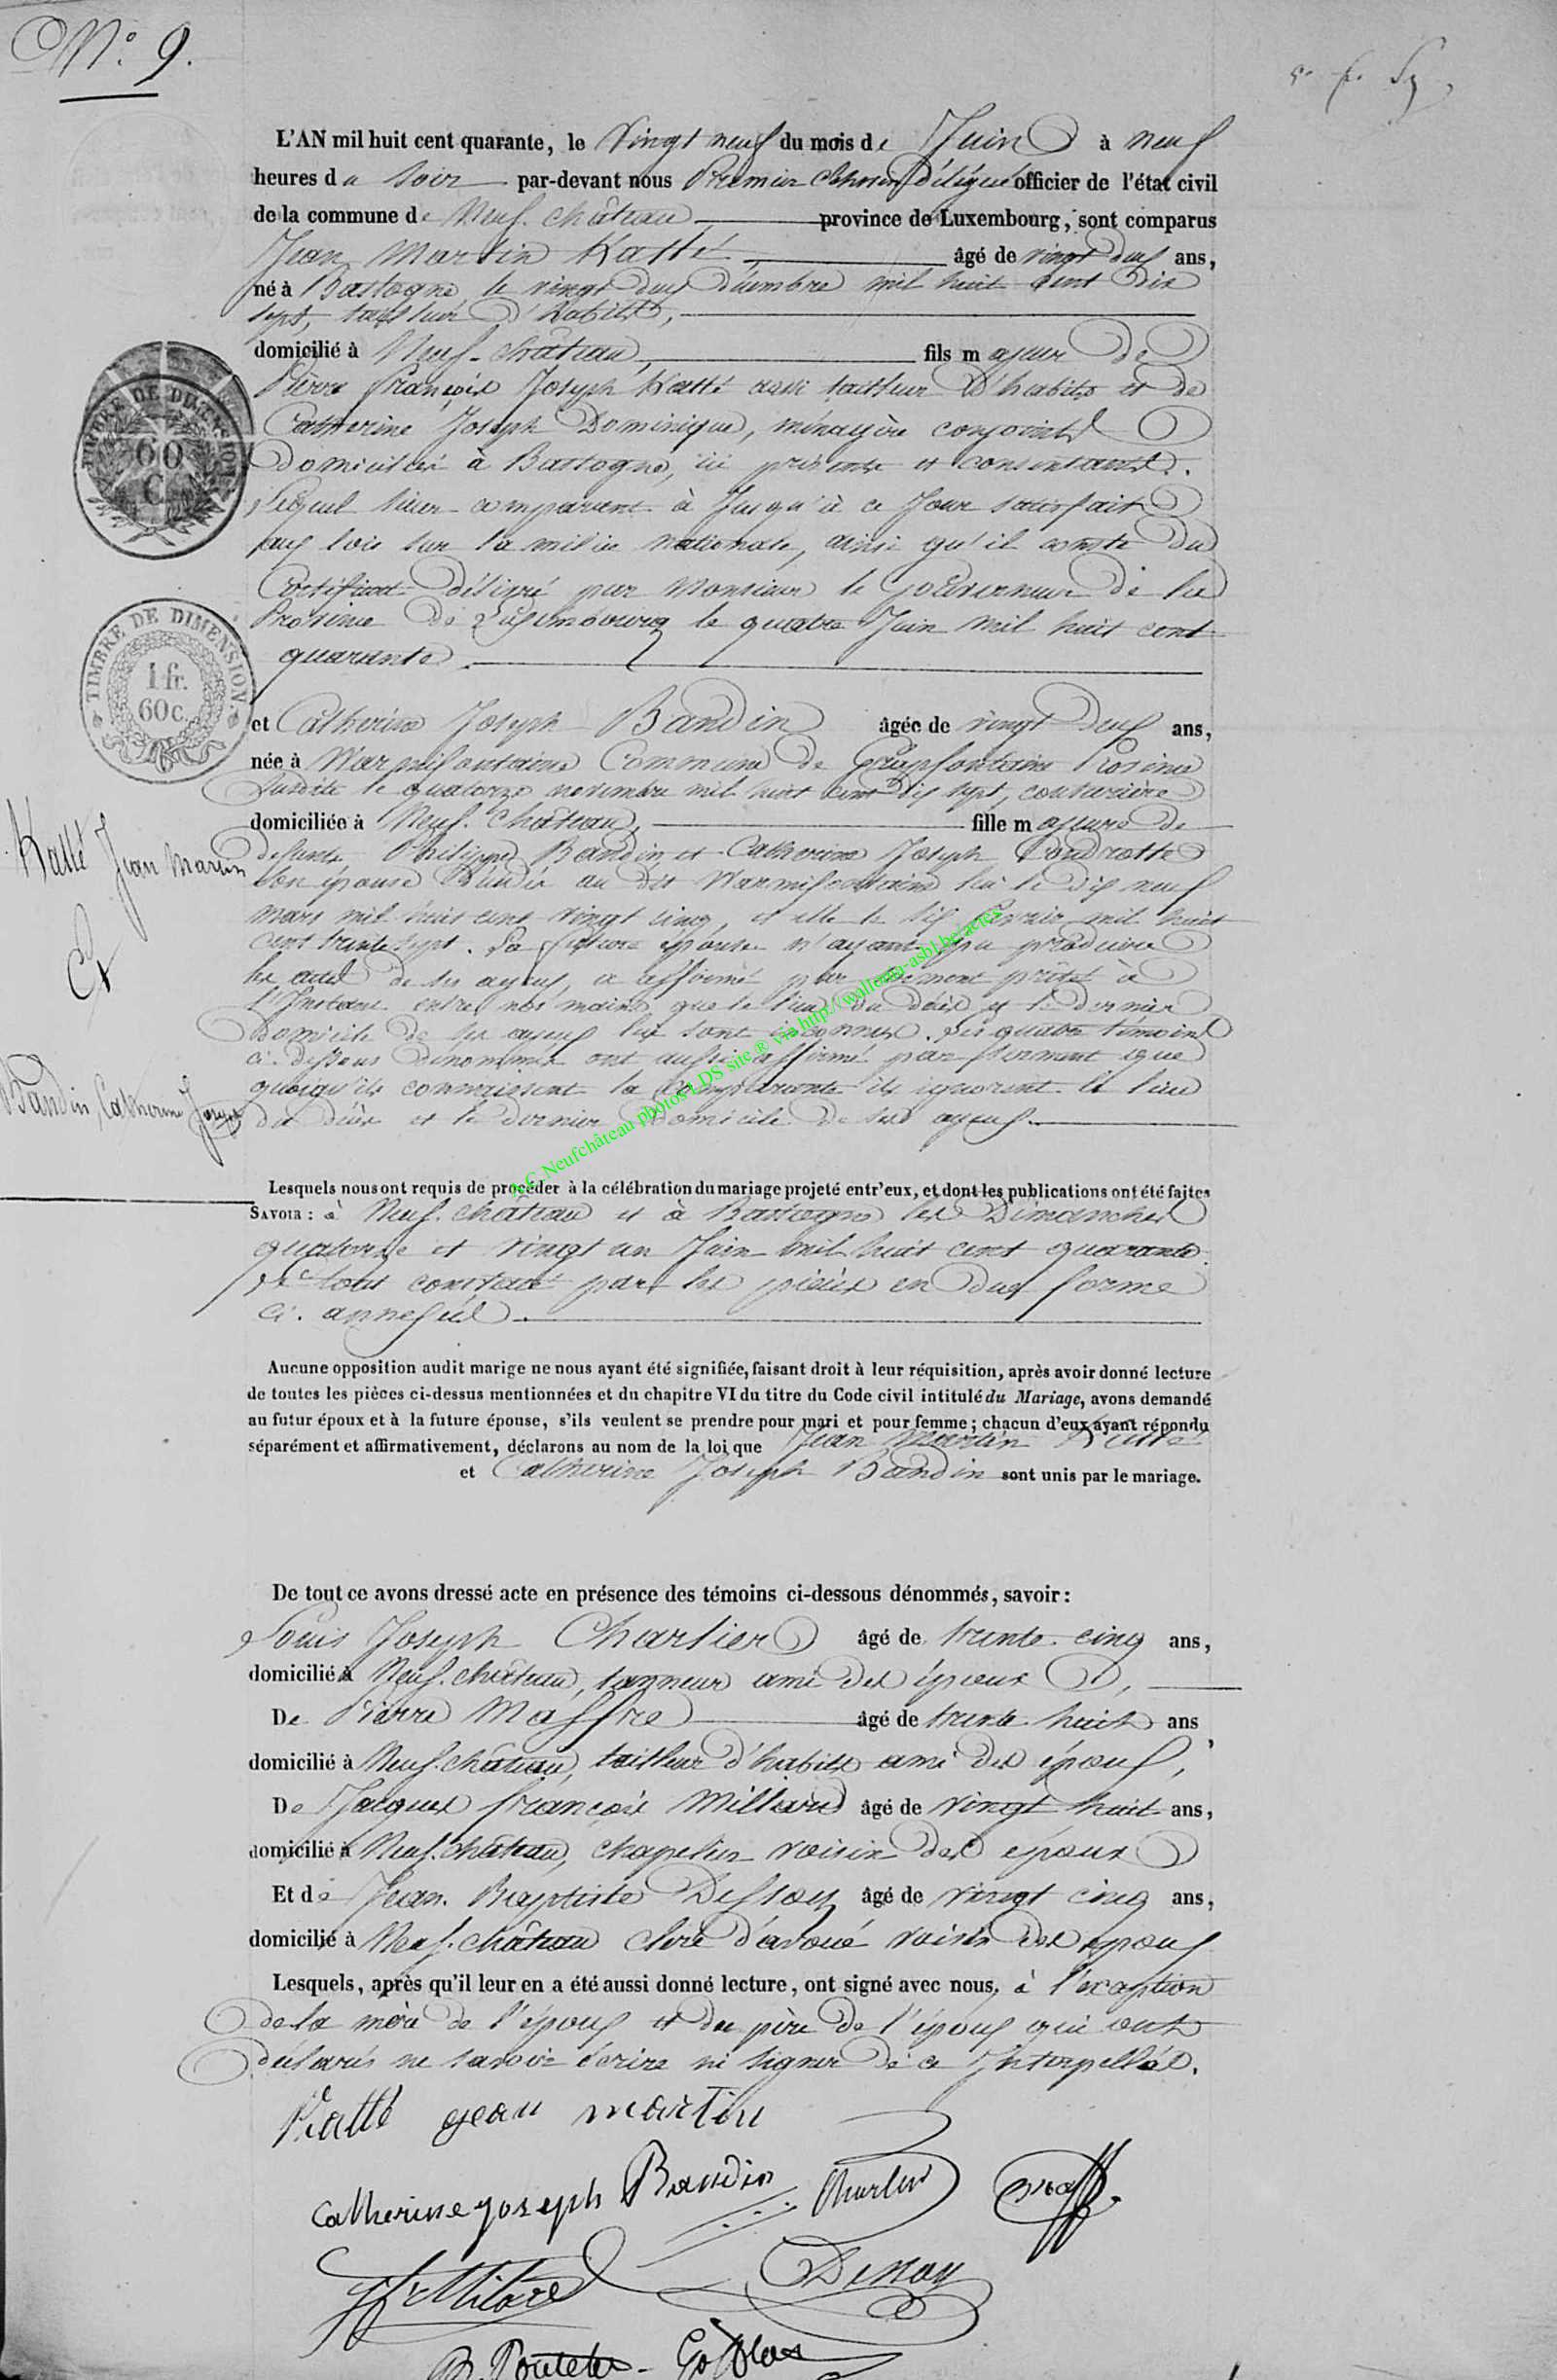 N.° 9.
L'AN mil huit cent quarante, le Vingt neuf du mois de Juin à neuf
heures du soir par-devant nous Premier Echevin Délégué officier de l'état civil
de la commune de Neuf-château province de Luxembourg, sont comparus
Jean Martin Katté, âgé de vingt deux ans,
né à Bastogne, le vingt deux Décembre mil huit cent dix
sept, tailleur d'habits,
domicilié à Neuf-château, fils majeur de
Pierre François Joseph Katté aussi tailleur d'habits et de
Catherine Joseph Dominique, ménagère conjoints
Domiciliés à Bastogne, ici présents et consentants.
Lequel sieur comparant à Jusqu'à ce Jour satisfait
aux lois sur la milice nationale, ainsi qu'il conste du
Certificat délivré par Monsieur le Gouverneur de la
Province de Luxembourg le quatre Juin mil huit cent
quarante.
TIMBRE DE DIMENSION
60
C.
TIMBRE DE DIMENSION.
1 fr.
60 c.
et Catherine Joseph Bandin âgée de vingt Deux ans,
née à Warmifontaine Commune de Grapfontaine Province
susdite le quatorze novembre mil huit cent dix sept, couturière
domiciliée à Neuf-Château, fille majeure de
defunts Philippe Bandin et Catherine Joseph
son épouse Décédés au dit Warmifontaine lui le dix neuf
mars mil huit cent vingt cinq, et elle le dix février mil huit
cent trente sept. La future épouse n'ayant pu produire
les actes de ses ayeux, a affirmé par serment prêté à
l'Instant entre nos mains que le lieu du décès et le dernier
domicile de ses ayeux lui sont inconnus. Les quatre témoins
ci-dessous dénommés ont aussi affirmé par serment que
quoiqu'ils connaissent la comparante ils ignorent le lieu
du décès et le dernier domicile de ses ayeux.
Katté Jean Martin
&
Bandin Catherine Joseph
A.C.Neufchâteau photos LDS site ® via http://wallonia-asbl.be/actes
Lesquels nous ont requis de procéder à la célébration du mariage projeté entr'eux, et dont les publications ont été faites
SAVOIR : à Neuf-château et à Bastogne les Dimanches
quatorze et vingt un Juin mil huit cent quarante
le tout constaté par les pièces en due forme
ci-annexées.
Aucune opposition audit marige ne nous ayant été signifiée, faisant droit à leur réquisition, après avoir donné lecture
de toutes les pièces ci-dessus mentionnées et du chapitre VI du titre du Code civil intitulé du Mariage, avons demandé
au futur époux et à la future épouse, s'ils veulent se prendre pour mari et pour femme ; chacun d'eux ayant répondu
séparément et affirmativement, déclarons au nom de la loi que Jean Martin Katté
et Catherine Joseph Bandin sont unis par le mariage.
De tout ce avons dressé acte en présence des témoins ci-dessous dénommés, savoir :
Louis Joseph Charlier âgé de trente-cinq ans,
domicilié à Neuf-château, tanneur ami des époux,
De Pierre Maffre âgé de trente-huit ans,
domicilié à Neuf-château, tailleur d'habits ami des époux,
De Jacques françois Millard âgé de vingt huit ans,
domicilié à Neuf-château, chapelier voisin des époux
Et de Jean-Baptiste Dessoy âgé de vingt cinq ans,
domicilié à Neuf-château clerc d'avoué voisin des époux
Lesquels, après qu'il leur en a été aussi donné lecture, ont signé avec nous, à l'exception
de la mère de l'époux et du père de l'époux qui ont
déclarés ne savoir écrire ni signer de ce Interpellés.
Katté jean martin
Catherine joseph Bandin Charlier
Dessoy